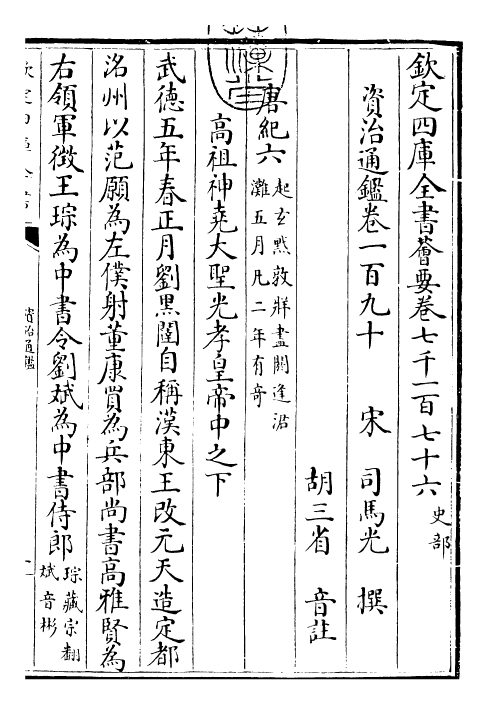 欽定四庫全書薈要卷七千一百七十六 史部
資治通鑑卷一百九十 宋 司馬光 撰
胡三省 音註
唐紀六 起玄黓敦牂盡閼逢涒
灘五月凡二年有奇
高祖神堯大聖光孝皇帝中之下
武德五年春正月劉黑闥自稱漢東王改元天造定都
洺州以范願為左僕射董康買為兵部尚書高雅賢為
右領軍徵王琮為中書令劉斌為中書侍郎 琮藏宗翻
斌音彬
資治通鑑